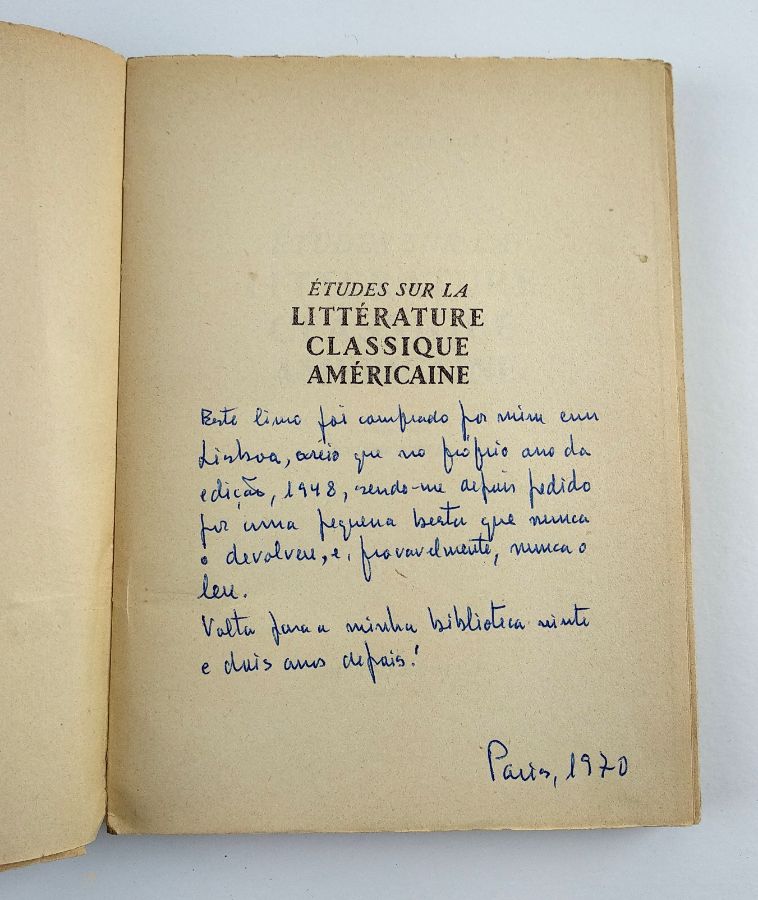 ÉTUDES SUR LA
LITTÉRATURE
CLASSIQUE
AMÉRICAINE
Este livro foi comprado por mim em
Lisboa, creio que no próprio ano da
edição, 1948, sendo-me depois pedido
por uma pequena besta que nunca
o devolveu, e, provavelmente, nunca o
leu.
Volta para a minha biblioteca vinte
e dois anos depois!
Paris, 1970